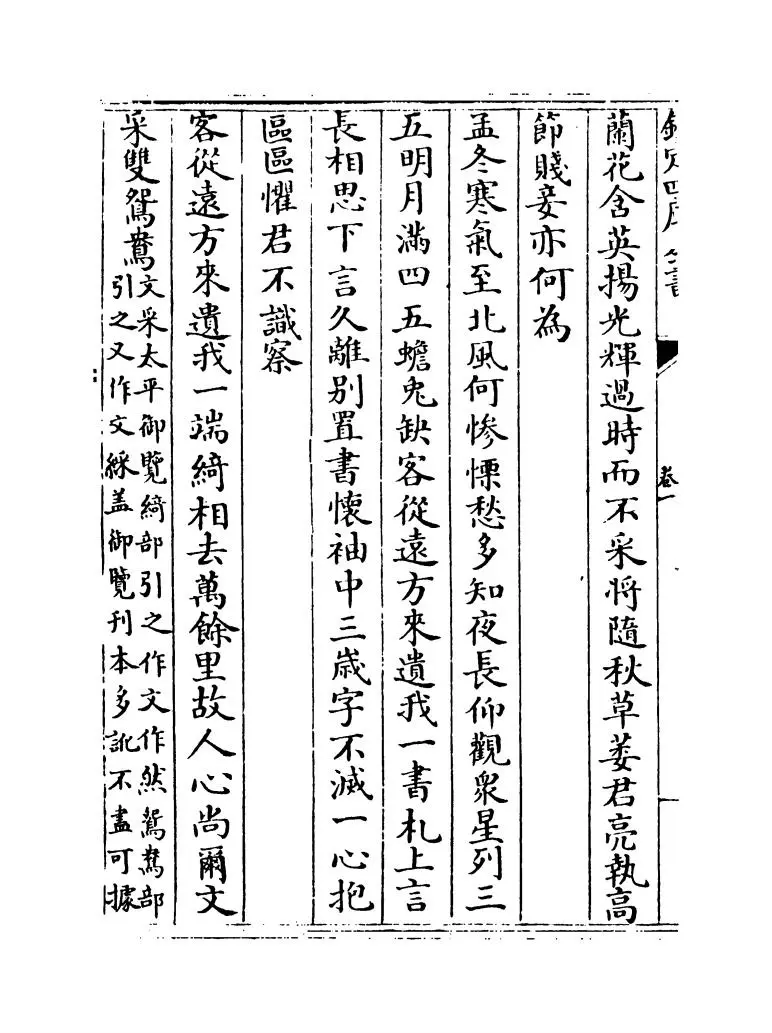 欽定四庫全書
卷一
蘭花含英揚光輝過時而不采將隨秋草萎君亮執高
節賤妾亦何為
孟冬寒氣至北風何惨慄愁多知夜長仰觀衆星列三
五明月滿四五蟾兎缺客從遠方來遺我一書札上言
長相思下言久離别置書懷袖中三歳字不滅一心抱
區區懼君不識察
客從遠方來遺我一端綺相去萬餘里故人心尚爾文
采雙鴛鴦
文采太平御覽綺部引之作文作然鴛鴦部
引之又作文綵盖御覽刊本多訛不盡可據